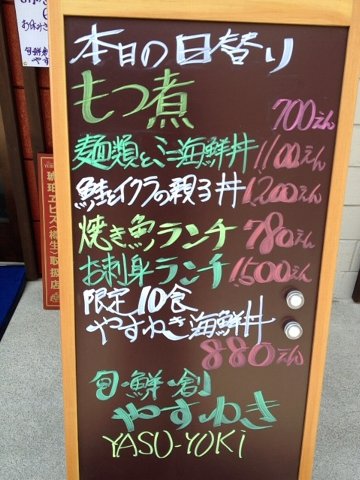 本日の日替り
もつ煮
700えん
麺類とミニ海鮮丼 1100えん
鮭とイクラの親子丼 1,200えん
焼き魚ランチ 780えん
お刺身ランチ 1,500えん
限定10食
やすわき海鮮丼
880えん
旬・鮮・創
やすわき
YASU-YUKI
琥珀ヱビス〈樽生〉取扱店